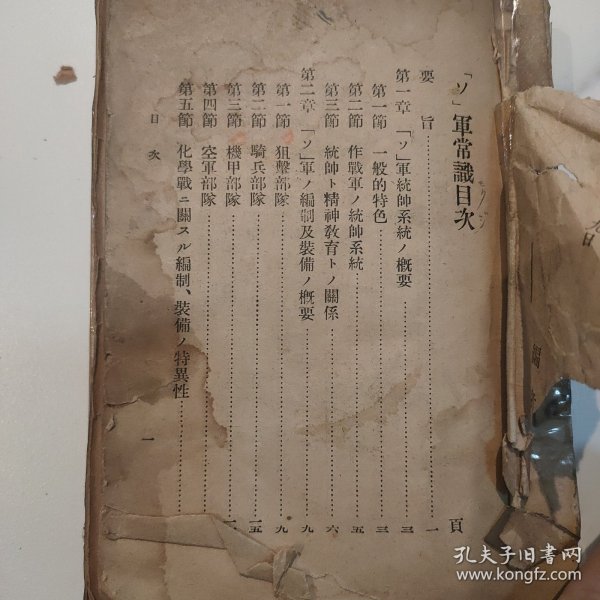 「ソ」軍常識目次
頁
要旨…一
第一章 「ソ」軍統帥系統ノ概要…三
第一節 一般的特色…三
第二節 作戰軍ノ統帥系統…五
第三節 統帥ト精神敎育トノ關係…六
第二章 「ソ」軍ノ編制及裝備ノ概要…九
第一節 狙擊部隊…九
第二節 騎兵部隊…一五
第三節 機甲部隊…
第四節 空軍部隊…
第五節 化學戰ニ關スル編制、裝備ノ特異性…
目次 一
孔夫子旧书网
www.kongfz.com